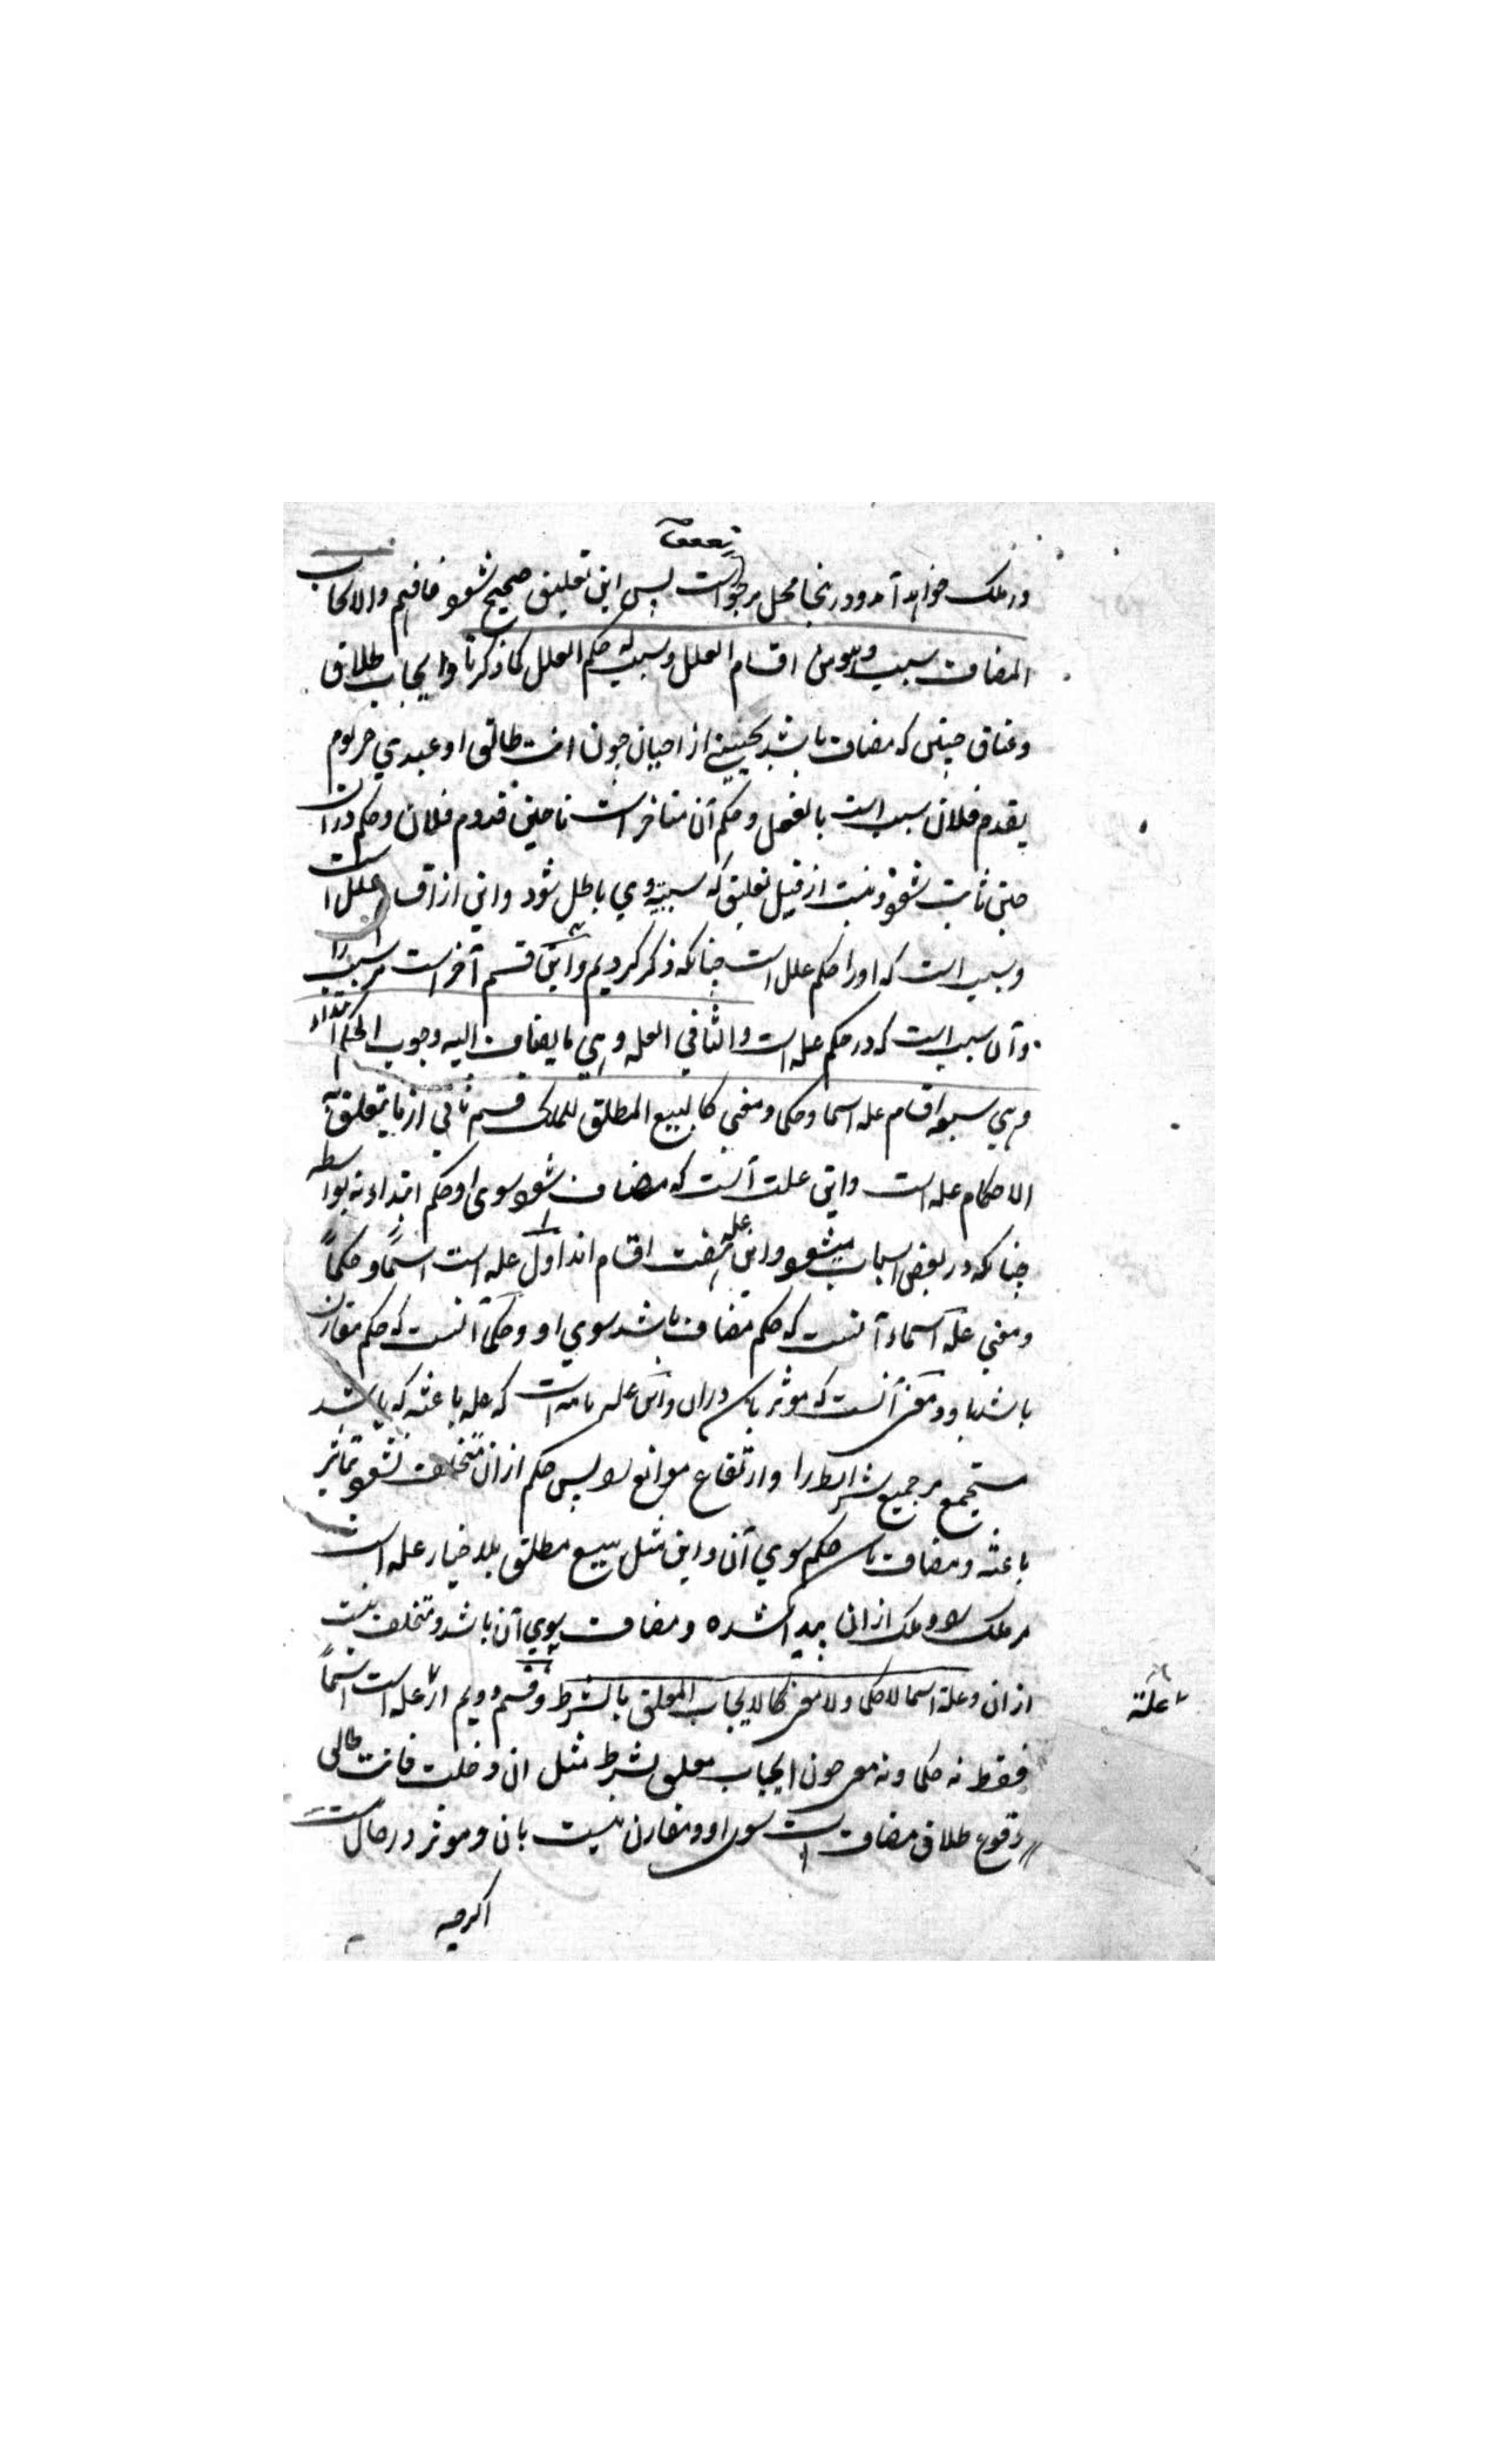 در ملک خواهد آمد و درینجا محل مرجو است پس این تعلیق صحیح شود فافهم والایجاب
المضاف سبب وهو من اقسام العلل وسبب له حکم العلل کما ذکرنا وایجاب طلاق
وعتاق حینی که مضاف باشد بحینی از احیان چون انت طالق او عبدي حر یوم
یقدم فلان سبب است بالفعل و حکم آن متاخر است تا حین قدوم فلان و حکم دران
حین ثابت شود و نیست از قبیل تعلیق که سببیة وي باطل شود واین از اقسام علل است
وسبب است که او را حکم علل است چنانکه ذکر کردیم واین قسم آخر است مر سبب را
وآن سبب است که در حکم علة است والثاني العلة وهي ما یضاف الیه وجوب الحکم ابتداء
وهي سبعة اقسام علة اسما وحکما ومعنی کالبیع المطلق للملک قسم ثاني از ما یتعلق به
الاحکام علة است واین علت آنست که مضاف شود سوی او حکم ابتداء نه بواسطه
چنانکه در بعض اسباب میشود واین علة هفت اقسام اند اول علة است اسمًا وحکمًا
ومعنی علة اسماء آنست که حکم مضاف باشد سوي او وحکما آنست که حکم مقارن
باشد باو ومعنی آنست که موثر باشد دران واین علة تامه است که علة باعثه که باشد
مستجمع مر جمیع شرایط را وارتفاع موانع را پس حکم ازان متخلف نشود بتاثیر
باعثه ومضاف باشد حکم سوي آن واین مثل بیع مطلق بلا خیار علة است
مر ملک را وملک ازان پیدا شده ومضاف بسوي آن باشد ومتخلف نیست
ازان وعلة اسما لا حکما ولا معنی کالایجاب المعلق بالشرط وقسم دویم از علة است اسمًا
علة
فقط نه حکما ونه معنی چون ایجاب معلق بشرط مثل ان دخلت فانت طالق
وقوع طلاق مضاف است سوی او ومقارن نیست بآن وموثر در حال نیست
اگرچه